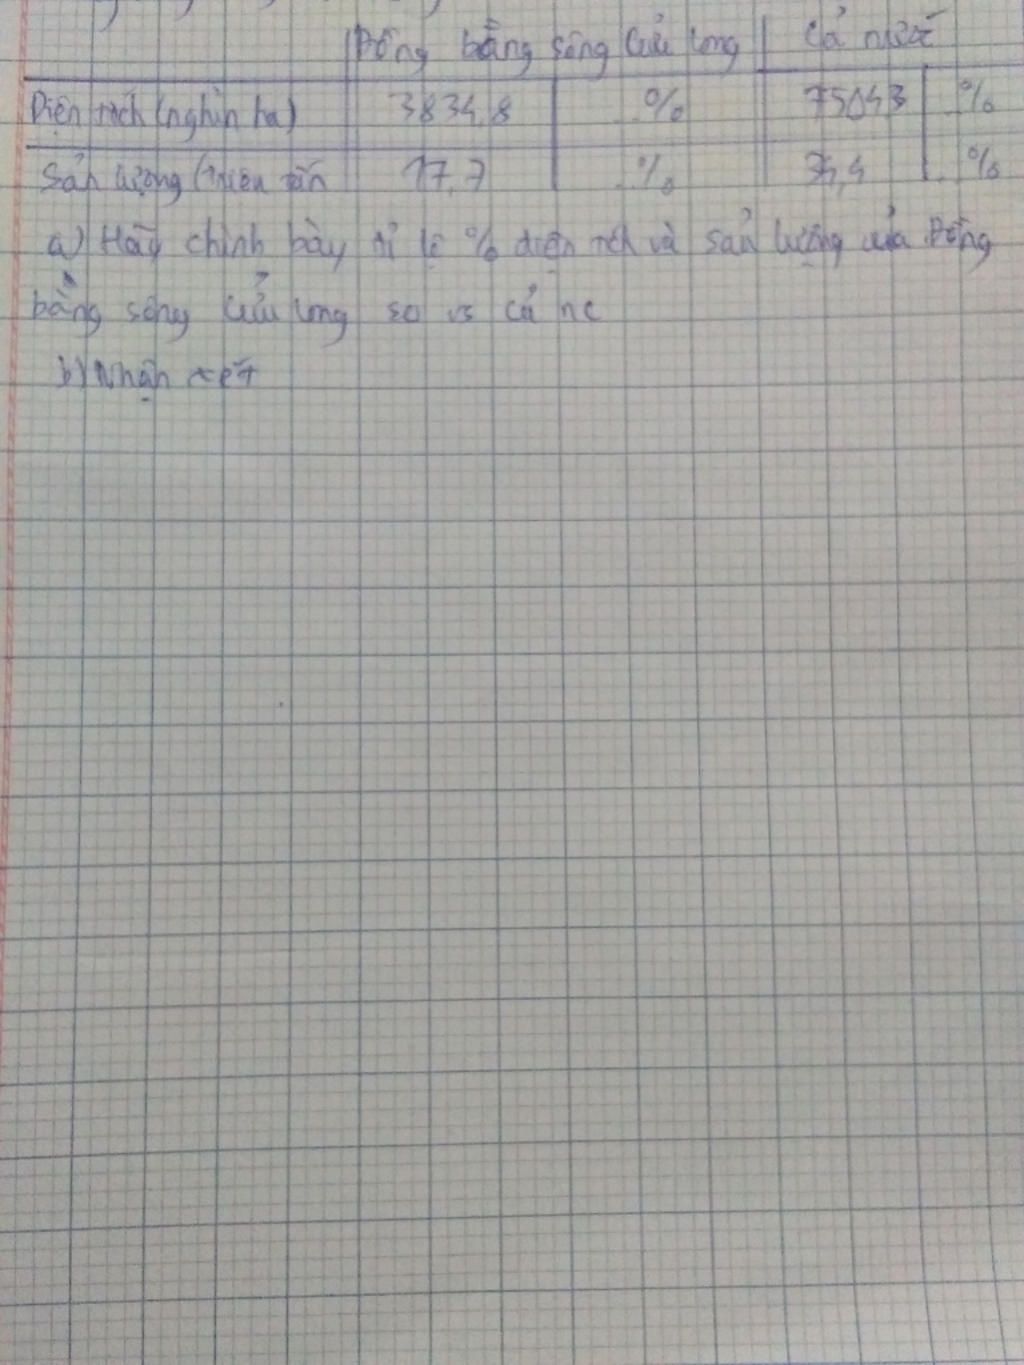 Đồng bằng sông Cửu Long Cả nước
Diện tích (nghìn ha) 3834,8 % 7504,3 %
Sản lượng (triệu tấn 17,7 % 34,4 %
a) Hãy chình bày tỉ lệ % diện tích và sản lượng của Đồng
bằng sông Cửu Long so vs cả nc
b) Nhận xét